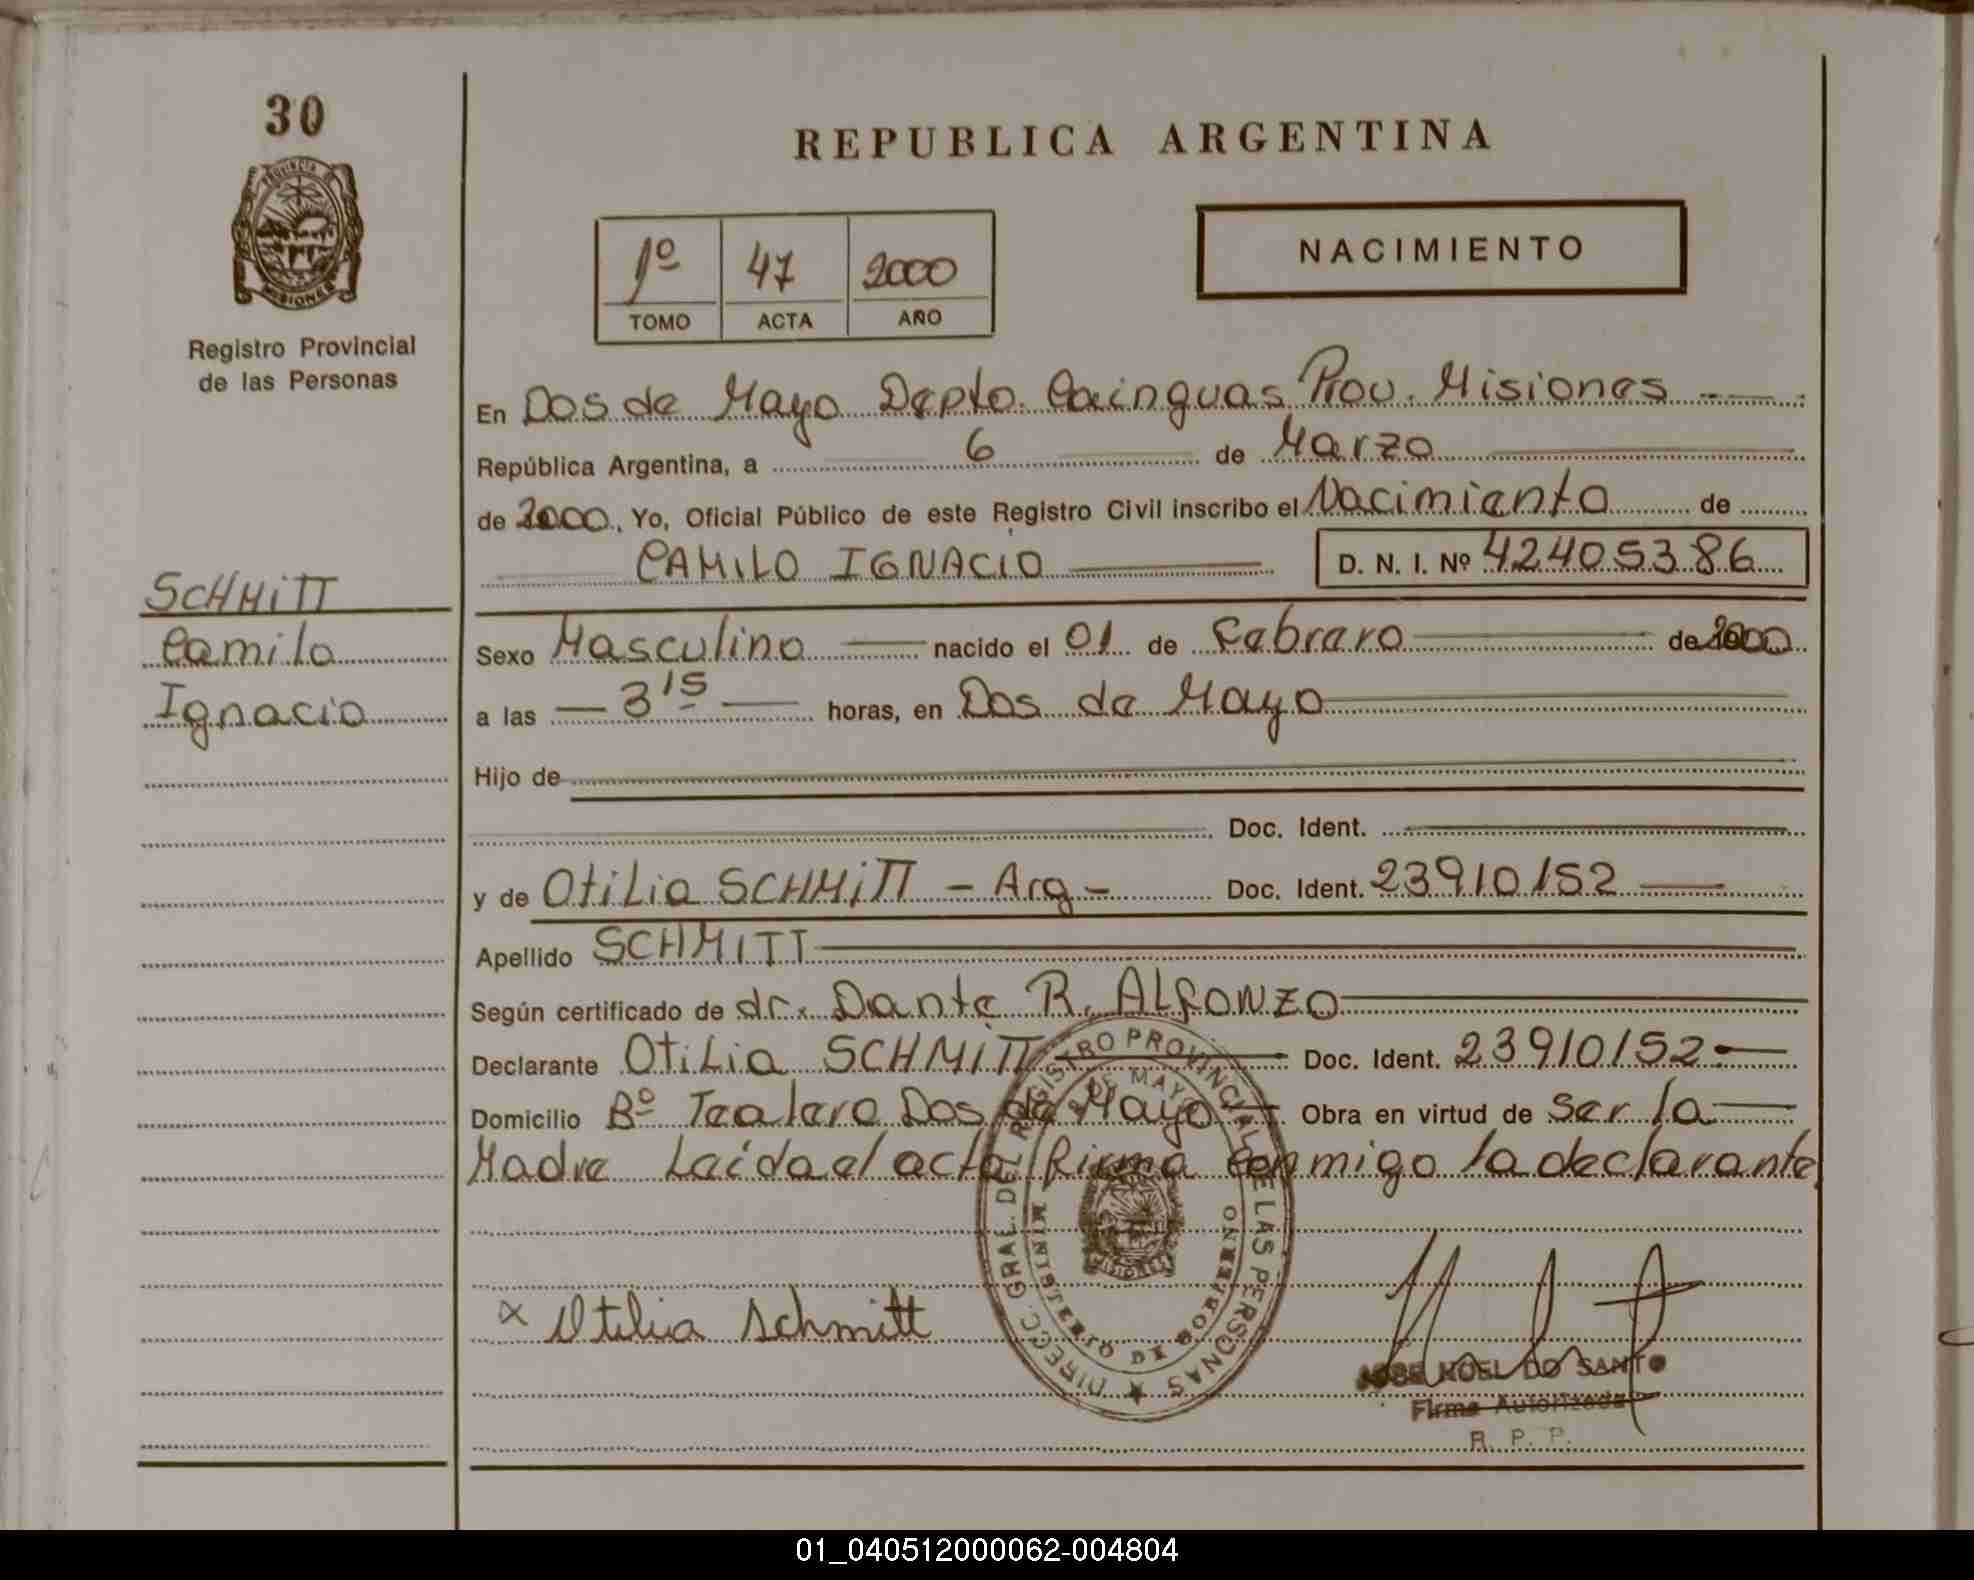 30
PROVINCIA DE
MISIONES
Registro Provincial
de las Personas
SCHMiTT
Camilo
Ignacio
REPUBLICA ARGENTINA
1º 47 2000
TOMO ACTA AÑO
NACIMIENTO
En Dos de Mayo Depto. Cainguas Prov. Misiones
República Argentina, a 6 de Marzo
de 2000, Yo, Oficial Público de este Registro Civil inscribo el Nacimiento de
CAMILO IGNACIO D. N. I. Nº 42405386
Sexo Masculino nacido el 01 de Febrero de 2000
a las 3 15 horas, en Dos de Mayo
Hijo de
Doc. Ident.
y de Otilia SCHMiTT - Arg - Doc. Ident. 23910152
Apellido SCHMITT
Según certificado de dr. Dante R. ALFONZO
Declarante Otilia SCHMiTT Doc. Ident. 23910152
Domicilio Bº Tealero Dos de Mayo Obra en virtud de ser la
Madre Leida el acta firma conmigo la declarante
DIRECC. GRAL. DEL REGISTRO PROVINCIAL DE LAS PERSONAS
2 DE MAYO
MINISTERIO DE GOBIERNO
MISIONES
x Otilia Schmitt
JOSE NOEL DO SANTO
Firma Autorizada
R. P. P.
01_040512000062-004804